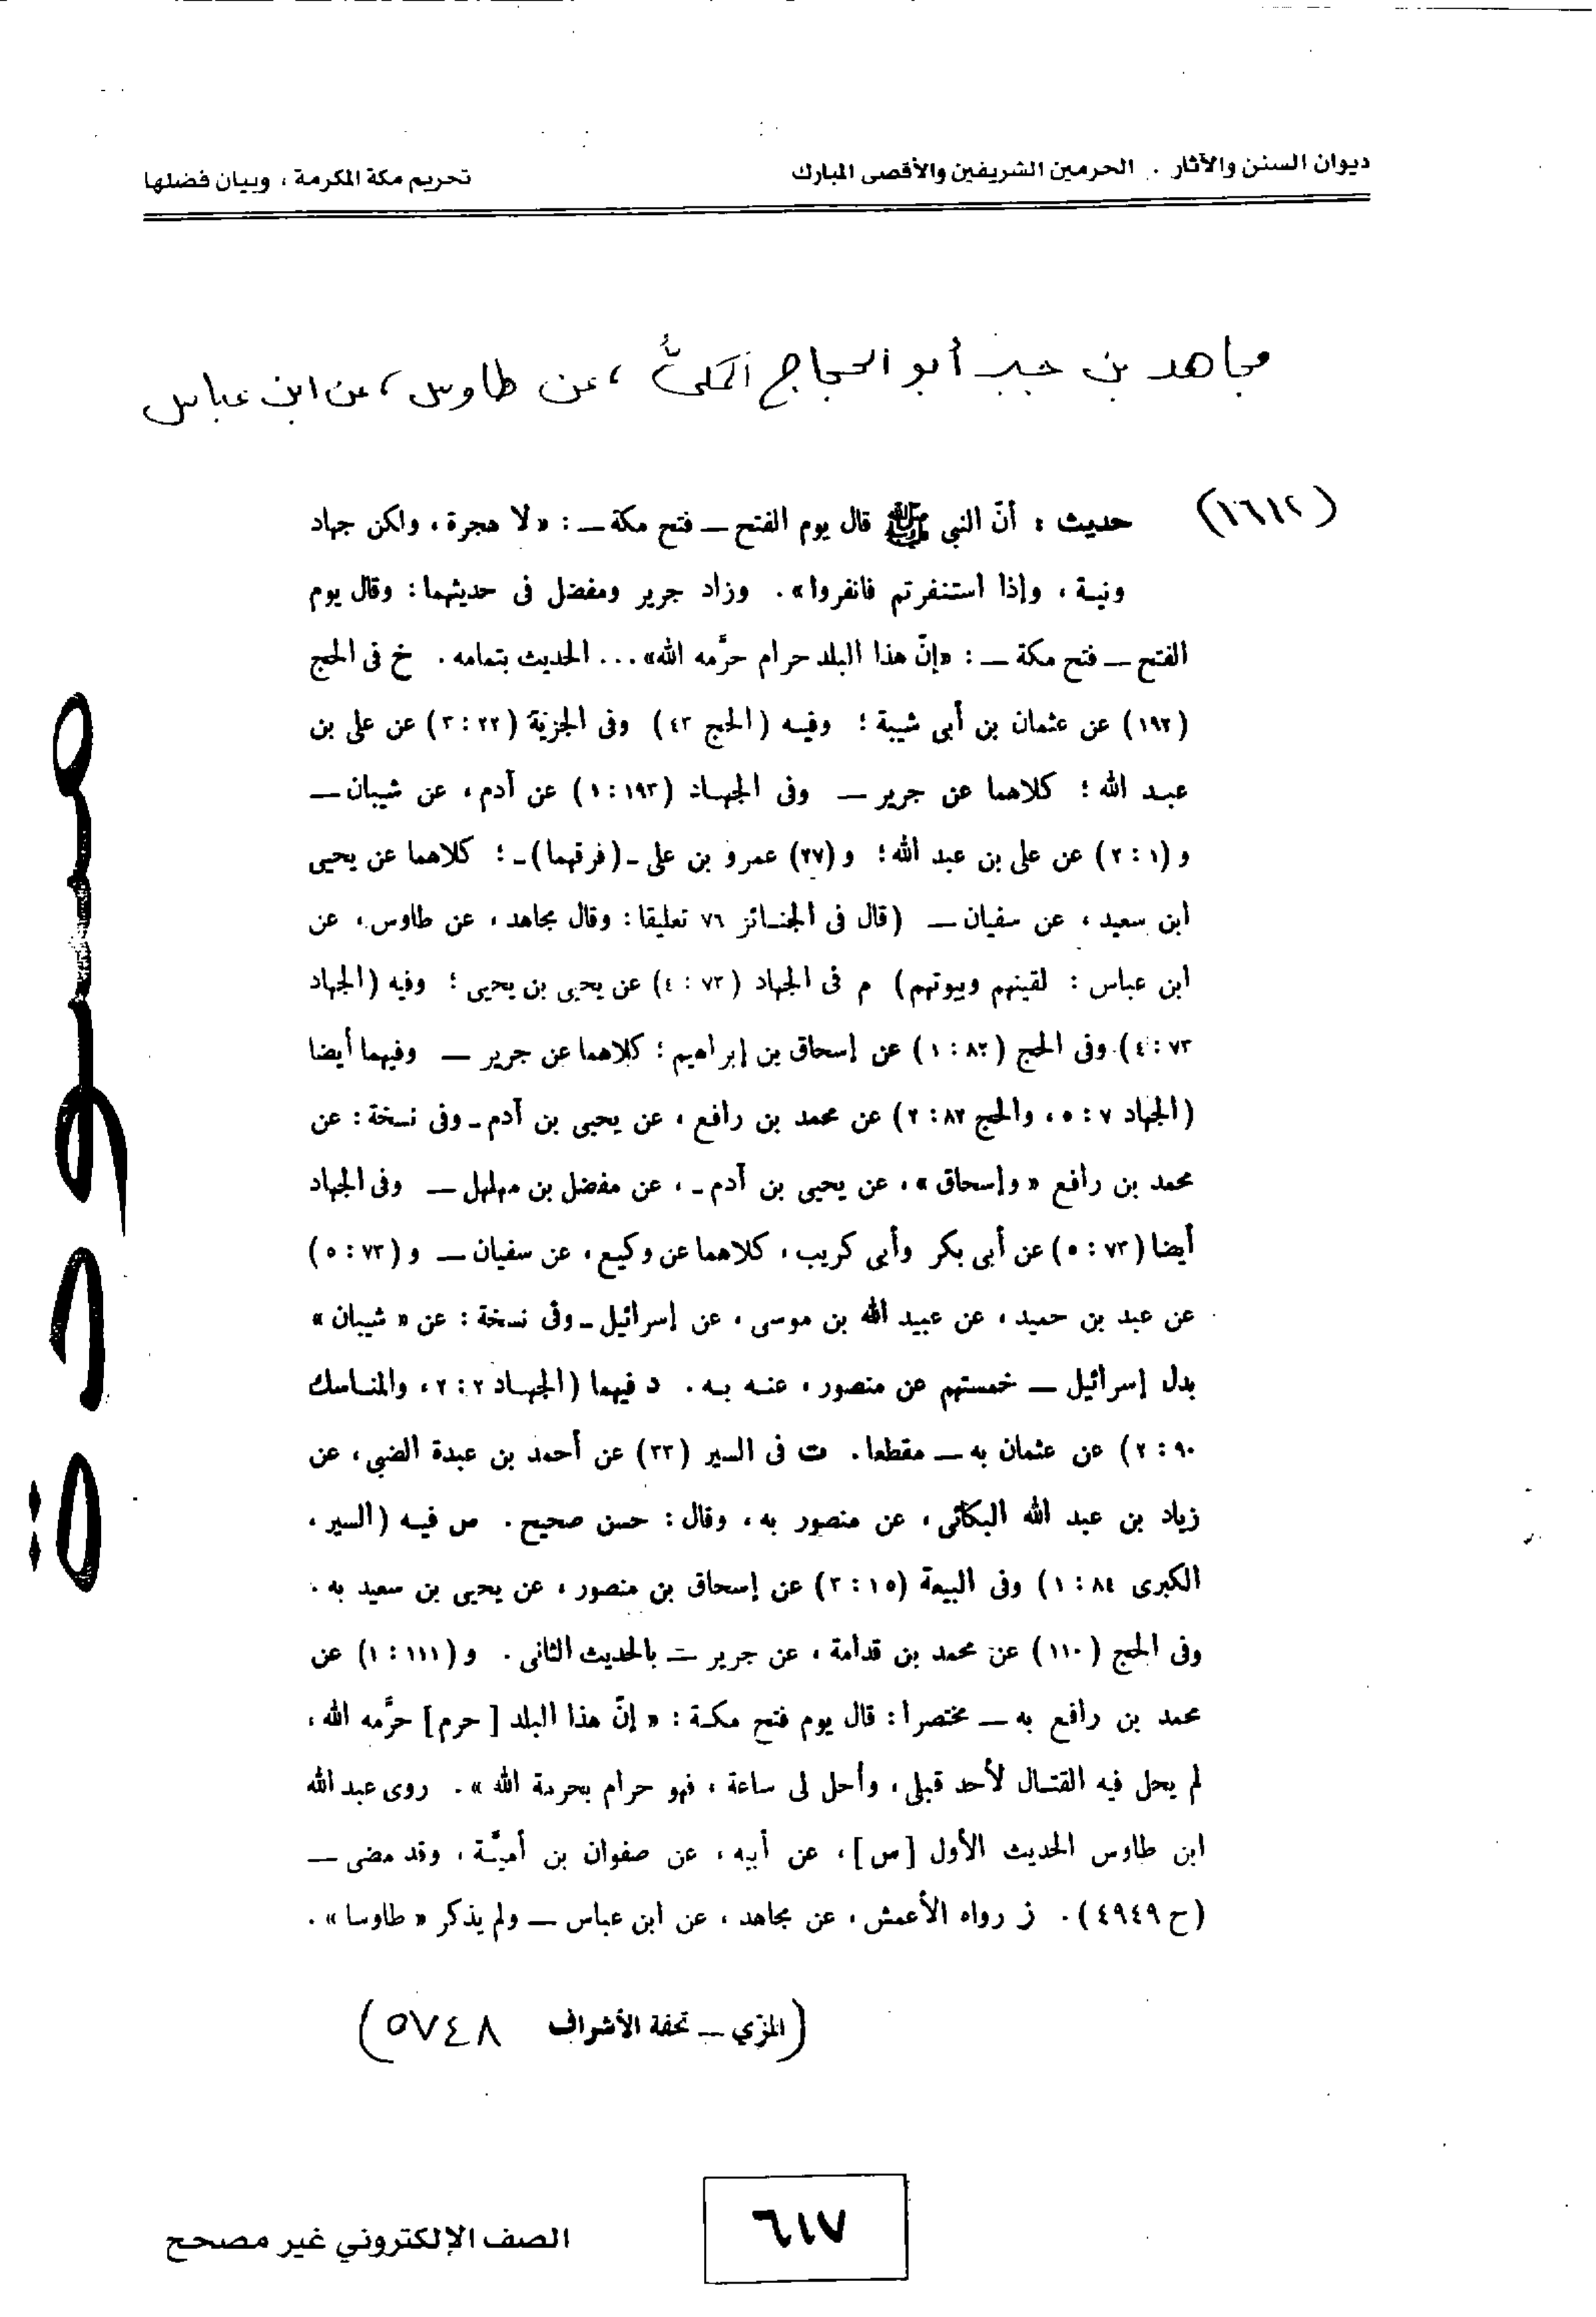 ديوان السنن والآثار . الحرمين الشريفين والأقصى المبارك
تحريم مكة المكرمة ، وبيان فضلها
مجاهد بن جبر أبو الحجاج المكىُّ ، عن طاوس ، عن ابن عباس
(١٦١٢)
حديث : أنّ النبي ﷺ قال يوم الفتح ــ فتح مكة ــ : « لا هجرة ، ولكن جهاد
ونية ، وإذا استنفرتم فانفروا » . وزاد جرير ومفضل فى حديثهما : وقال يوم
الفتح ــ فتح مكة ــ : «إنّ هذا البلد حرام حرَّمه الله» ... الحديث بتمامه . خ فى الحج
(١٩٢) عن عثمان بن أبى شيبة ؛ وفيه (الحج ٤٣) وفى الجزية (٢٢ : ٣) عن على بن
عبد الله ؛ كلاهما عن جرير ــ وفى الجهاد (١٩٣ : ١) عن آدم ، عن شيبان ــ
و (١ : ٢) عن على بن عبد الله ؛ و (٢٧) عمرو بن على ـ (فرقهما) ـ ؛ كلاهما عن يحيى
ابن سعيد ، عن سفيان ــ (قال فى الجنائز ٧٦ تعليقا : وقال مجاهد ، عن طاوس ، عن
ابن عباس : لقينهم وبيوتهم) م فى الجهاد (٧٣ : ٤) عن يحيى بن يحيى ؛ وفيه (الجهاد
٧٣ : ٤) وفى الحج (٨٢ : ١) عن إسحاق بن إبراهيم ؛ كلاهما عن جرير ــ وفيهما أيضا
(الجهاد ٧ : ٥ ، والحج ٨٢ : ٢) عن محمد بن رافع ، عن يحيى بن آدم ـ وفى نسخة : عن
محمد بن رافع « وإسحاق » ، عن يحيى بن آدم ـ ، عن مفضل بن مهلهل ــ وفى الجهاد
أيضا (٧٣ : ٥) عن أبى بكر وأبى كريب ، كلاهما عن وكيع ، عن سفيان ــ و (٧٣ : ٥)
عن عبد بن حميد ، عن عبيد الله بن موسى ، عن إسرائيل ـ وفى نسخة : عن « شيبان »
بدل إسرائيل ــ خمستهم عن منصور ، عنه به . د فيهما (الجهاد ٢ : ٢ ، والمناسك
٩٠ : ٢) عن عثمان به ــ مقطعا . ت فى السير (٣٣) عن أحمد بن عبدة الضبي ، عن
زياد بن عبد الله البكائى ، عن منصور به ، وقال : حسن صحيح . س فيه (السير ،
الكبرى ٨٤ : ١) وفى البيعة (١٥ : ٣) عن إسحاق بن منصور ، عن يحيى بن سعيد به .
وفى الحج (١١٠) عن محمد بن قدامة ، عن جرير ــ بالحديث الثانى . و (١١١ : ١) عن
محمد بن رافع به ــ مختصرا : قال يوم فتح مكة : « إنّ هذا البلد [حرم] حرَّمه الله ،
لم يحل فيه القتال لأحد قبلى ، وأحل لى ساعة ، فهو حرام بحرمة الله » . روى عبد الله
ابن طاوس الحديث الأول [س] ، عن أبيه ، عن صفوان بن أميَّة ، وقد مضى ــ
(ح ٤٩٤٩) . ز رواه الأعمش ، عن مجاهد ، عن ابن عباس ــ ولم يذكر « طاوسا » .
(المزي ــ تحفة الأشراف ٥٧٤٨)
٦١٧
الصف الإلكتروني غير مصحح
مسودة